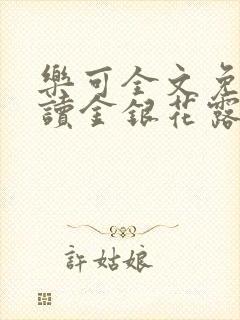 樂可全文免
讀金銀花露
許姑娘